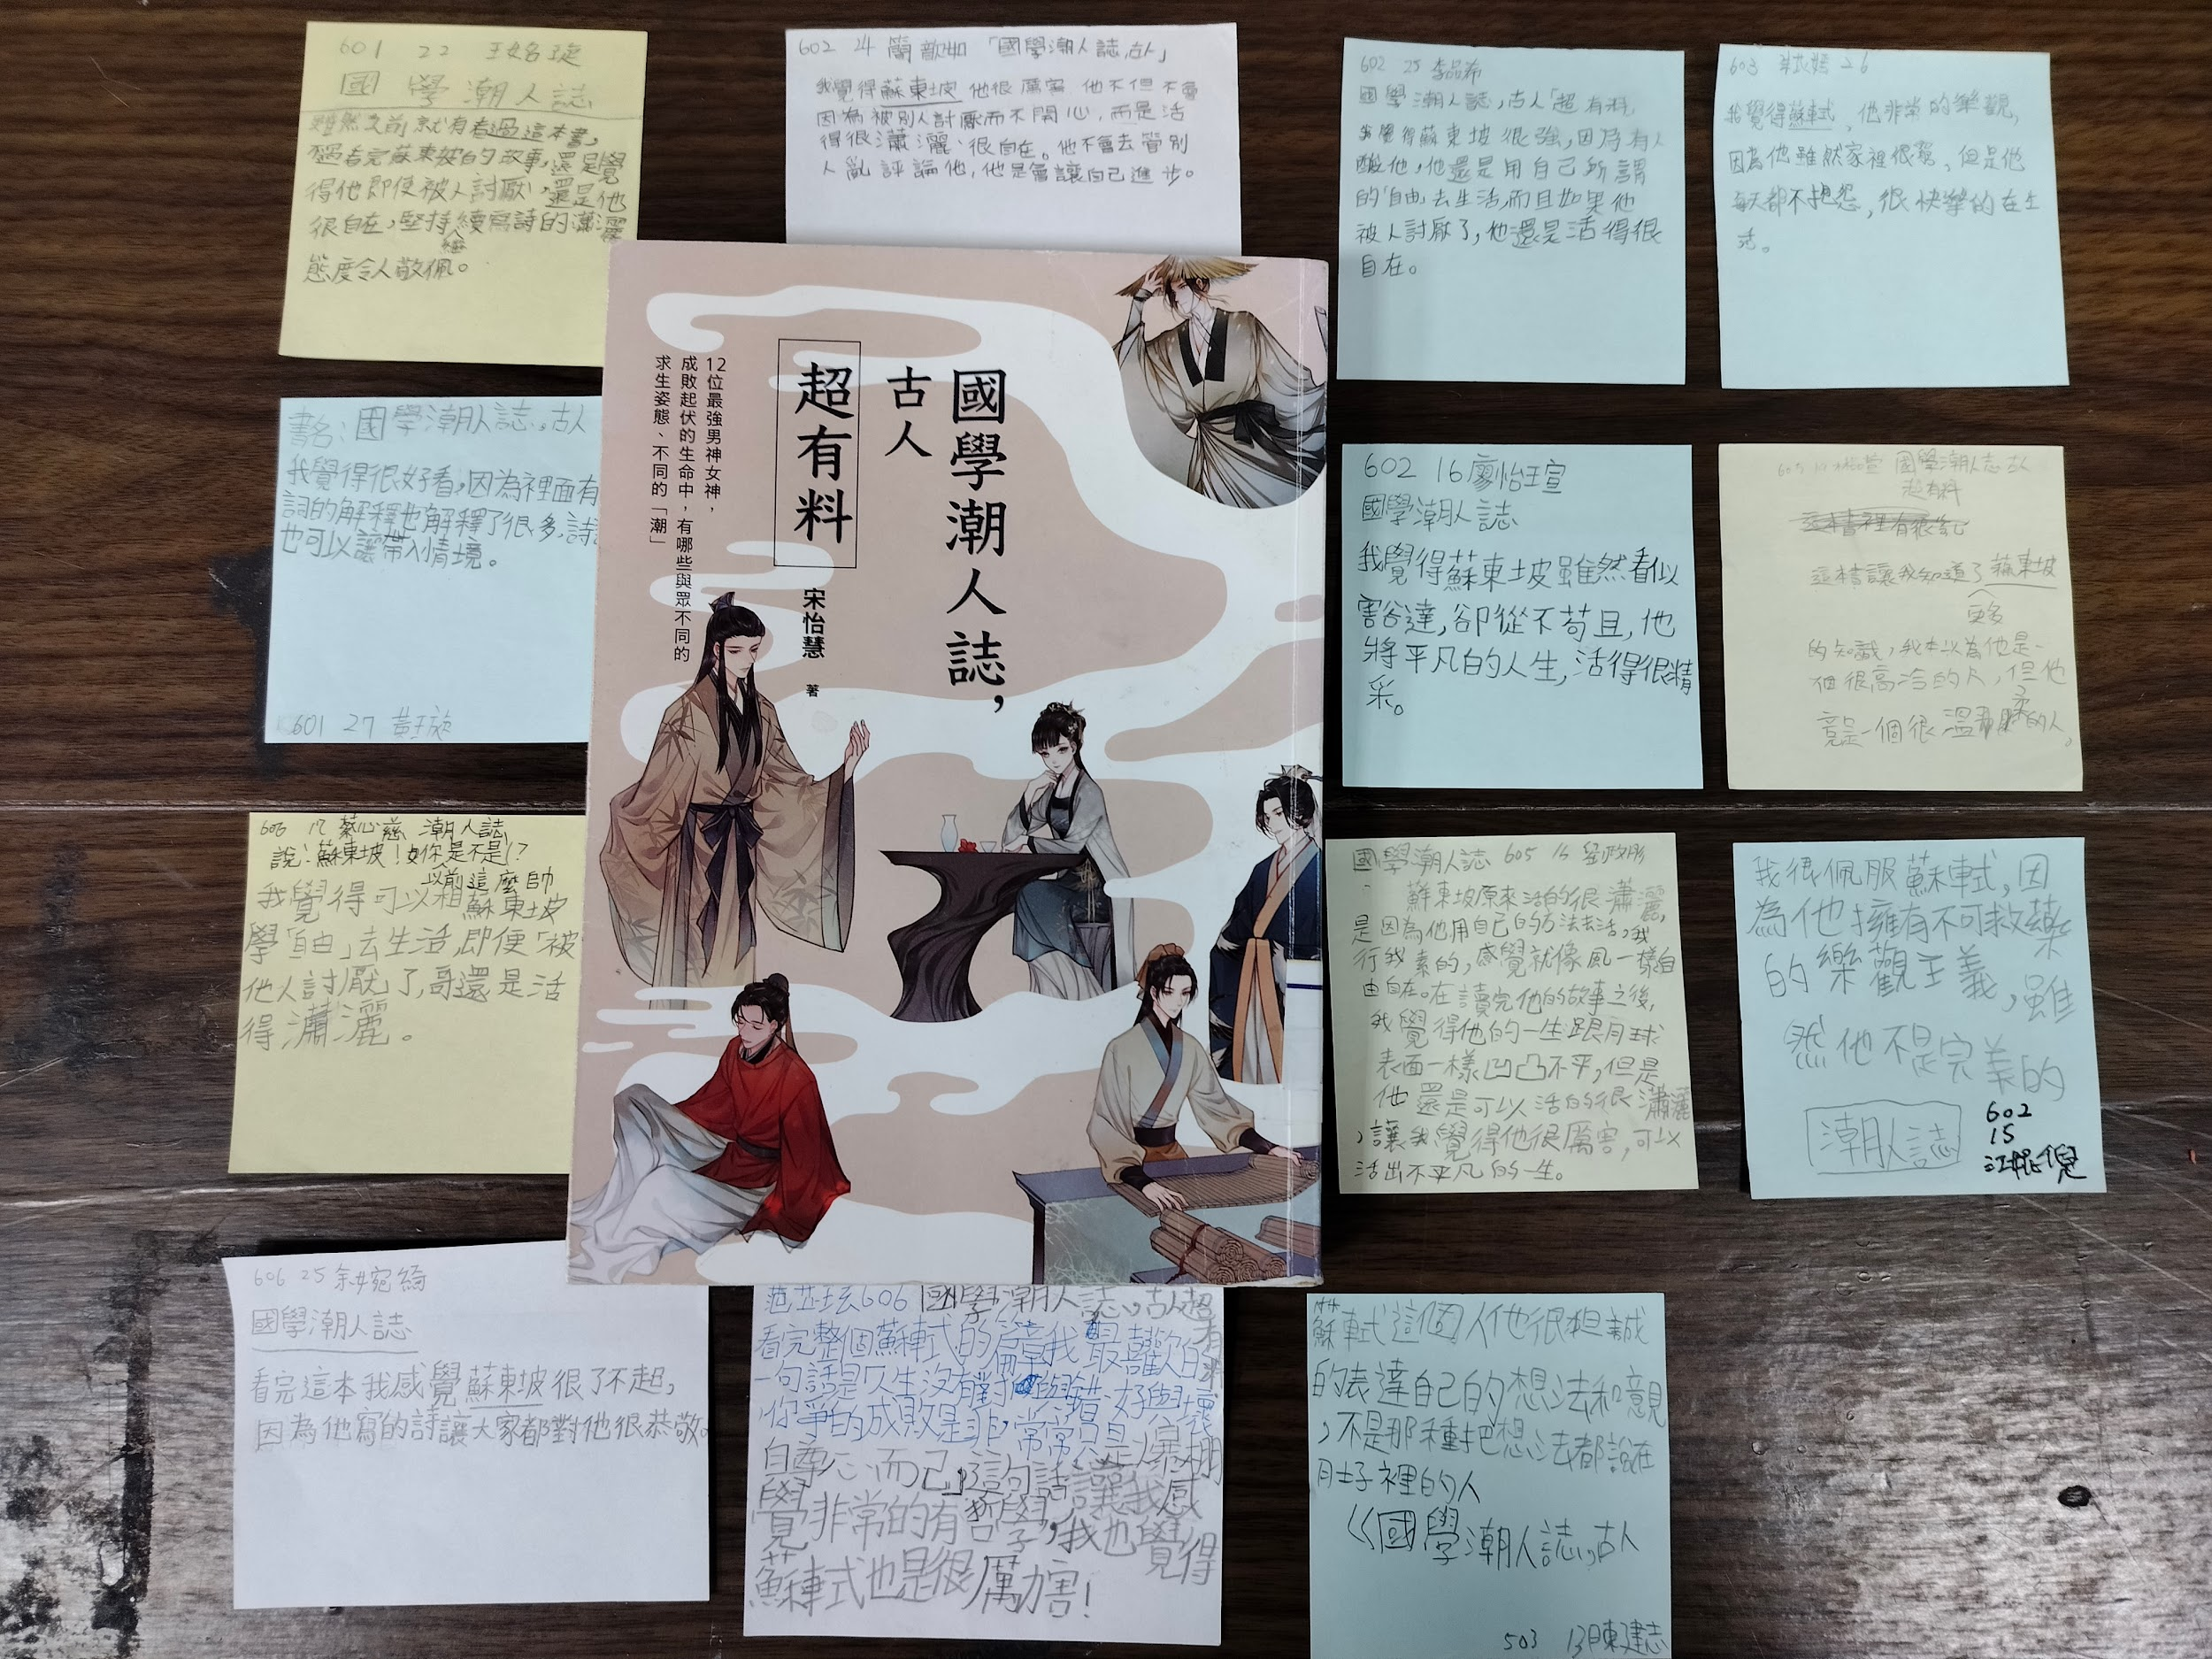 601 22 王妘琁
國學潮人誌
雖然之前就有看過這本書,
不過看完蘇東坡的故事,還是覺
得他即使被人討厭,還是他
很自在,堅持繼續寫詩的瀟灑
態度令人敬佩。
602 24 簡歆如 「國學潮人誌,古人」
我覺得蘇東坡他很厲害 他不但不會
因為被別人討厭而不開心,而是活
得很瀟灑、很自在。他不會去管別
人亂評論他,他是會讓自己進步。
602 25 李品希
國學潮人誌,古人「超有料」
我覺得蘇東坡很強,因為有人
酸他,他還是用自己所謂
的「自由」去生活,而且如果他
被人討厭了,他還是活得很
自在。
603 26
我覺得蘇軾,他非常的樂觀,
因為他雖然家裡很窮,但是他
每天都不抱怨,很快樂的在生
活。
書名:國學潮人誌,古人
我覺得很好看,因為裡面有
詞的解釋也解釋了很多,詩
也可以讓帶入情境。
601 27 黃玨旋
國學潮人誌,
古人
超有料
宋怡慧 著
12位最強男神女神,
成敗起伏的生命中,有哪些與眾不同的
求生姿態、不同的「潮」
602 16 廖怡瑄
國學潮人誌
我覺得蘇東坡雖然看似
豁達,卻從不苟且,他
將平凡的人生,活得很精
采。
國學潮人志古人
超有料
這本書讓我知道了更多蘇東坡
的知識,我本以為他是一
個很高冷的人,但他
竟是一個很溫柔的人。
606 17 蔡心慈 潮人誌
說:蘇東坡!你是不是
以前這麼帥
我覺得可以相蘇東坡
學「自由」去生活,即便「被
他人討厭了,哥還是活
得瀟灑。
國學潮人誌 605 15 劉政彤
蘇東坡原來活的很瀟灑,
是因為他用自己的方法去活,我
行我素的,感覺就像風一樣自
由自在。在讀完他的故事之後,
我覺得他的一生跟月球
表面一樣凹凸不平,但是
他還是可以活的很瀟灑
,讓我覺得他很厲害,可以
活出不平凡的一生。
我很佩服蘇軾,因
為他擁有不可救藥
的樂觀主義,雖
然他不是完美的
潮人誌
602
15
606 25 余宛綺
國學潮人誌
看完這本我感覺蘇東坡很了不起,
因為他寫的詩讓大家都對他很恭敬。
范芷玹606 國學潮人誌,古人超有料
看完整個蘇軾的篇章我最喜歡的
一句話是「人生沒有對與錯、好與壞
你爭的成敗是非,常常只是爆棚
自尊心而已」這句話讓我感
覺非常的有哲學,我也覺得
蘇軾也是很厲害!
蘇軾這個人他很坦誠
的表達自己的想法和意見
,不是那種把想法都說在
肚子裡的人
《國學潮人誌,古人
503 13陳建志